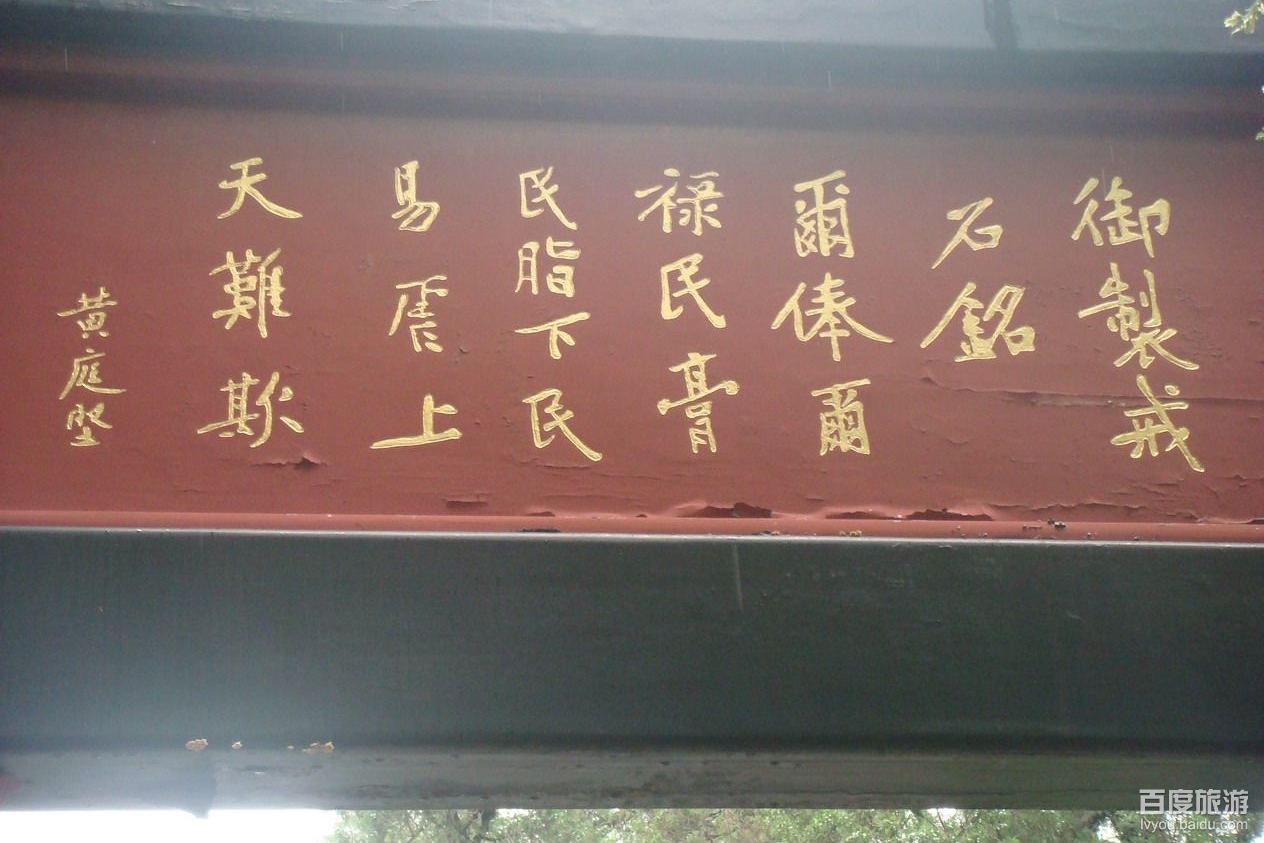 御製戒
石銘
爾俸爾
禄民膏
民脂下民
易虐上
天難欺
黄庭堅
百度旅游
lvyou.baidu.com